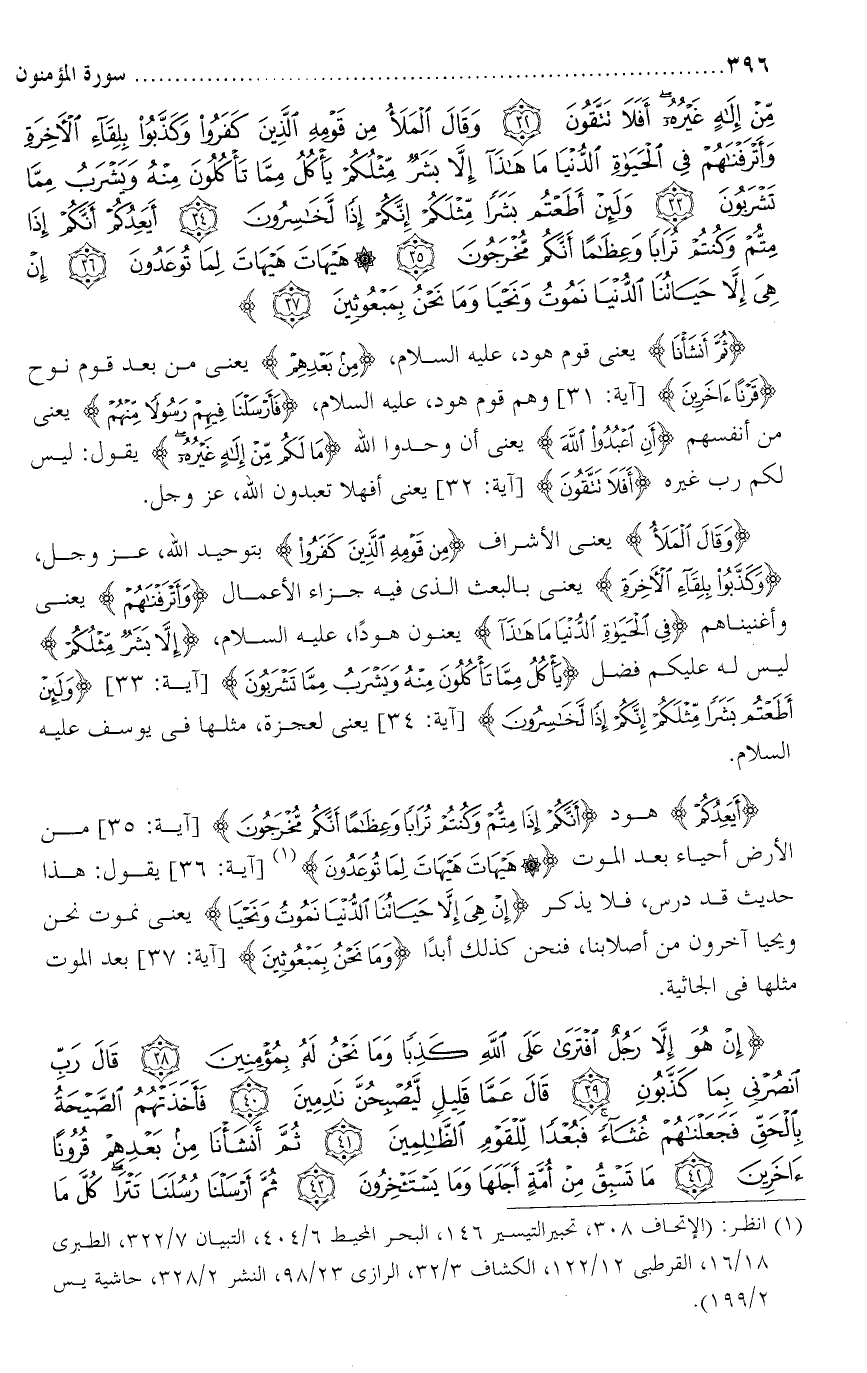 ٣٩٦ ........................................................................ سورة المؤمنون
مِّنْ إِلَٰهٍ غَيْرُهُۥٓ ۖ أَفَلَا تَتَّقُونَ ﴿٣٢﴾ وَقَالَ ٱلْمَلَأُ مِن قَوْمِهِ ٱلَّذِينَ كَفَرُوا۟ وَكَذَّبُوا۟ بِلِقَآءِ ٱلْأَخِرَةِ
وَأَتْرَفْنَٰهُمْ فِى ٱلْحَيَوٰةِ ٱلدُّنْيَا مَا هَٰذَآ إِلَّا بَشَرٌ مِّثْلُكُمْ يَأْكُلُ مِمَّا تَأْكُلُونَ مِنْهُ وَيَشْرَبُ مِمَّا
تَشْرَبُونَ ﴿٣٣﴾ وَلَئِنْ أَطَعْتُم بَشَرًا مِّثْلَكُمْ إِنَّكُمْ إِذًا لَّخَٰسِرُونَ ﴿٣٤﴾ أَيَعِدُكُمْ أَنَّكُمْ إِذَا
مِتُّمْ وَكُنتُمْ تُرَابًا وَعِظَٰمًا أَنَّكُم مُّخْرَجُونَ ﴿٣٥﴾ ۞ هَيْهَاتَ هَيْهَاتَ لِمَا تُوعَدُونَ ﴿٣٦﴾ إِنْ
هِىَ إِلَّا حَيَاتُنَا ٱلدُّنْيَا نَمُوتُ وَنَحْيَا وَمَا نَحْنُ بِمَبْعُوثِينَ ﴿٣٧﴾ ﴾
﴿ثُمَّ أَنشَأْنَا﴾ يعنى قوم هود، عليه السلام، ﴿مِنۢ بَعْدِهِمْ﴾ يعنى من بعد قوم نوح
﴿قَرْنًا ءَاخَرِينَ﴾ [آية: ٣١] وهم قوم هود، عليه السلام، ﴿فَأَرْسَلْنَا فِيهِمْ رَسُولًا مِّنْهُمْ﴾ يعنى
من أنفسهم ﴿أَنِ ٱعْبُدُوا۟ ٱللَّهَ﴾ يعنى أن وحدوا الله ﴿مَا لَكُم مِّنْ إِلَٰهٍ غَيْرُهُۥٓ ۖ﴾ يقول: ليس
لكم رب غيره ﴿أَفَلَا تَتَّقُونَ﴾ [آية: ٣٢] يعنى أفهلا تعبدون الله، عز وجل.
﴿وَقَالَ ٱلْمَلَأُ﴾ يعنى الأشراف ﴿مِن قَوْمِهِ ٱلَّذِينَ كَفَرُوا۟﴾ بتوحيد الله، عز وجل،
﴿وَكَذَّبُوا۟ بِلِقَآءِ ٱلْأَخِرَةِ﴾ يعنى بالبعث الذى فيه جزاء الأعمال ﴿وَأَتْرَفْنَٰهُمْ﴾ يعنى
وأغنيناهم ﴿فِى ٱلْحَيَوٰةِ ٱلدُّنْيَا مَا هَٰذَآ﴾ يعنون هودًا، عليه السلام، ﴿إِلَّا بَشَرٌ مِّثْلُكُمْ﴾
ليس له عليكم فضل ﴿يَأْكُلُ مِمَّا تَأْكُلُونَ مِنْهُ وَيَشْرَبُ مِمَّا تَشْرَبُونَ﴾ [آية: ٣٣] ﴿وَلَئِنْ
أَطَعْتُم بَشَرًا مِّثْلَكُمْ إِنَّكُمْ إِذًا لَّخَٰسِرُونَ﴾ [آية: ٣٤] يعنى لعجزة، مثلها فى يوسف عليه
السلام.
﴿أَيَعِدُكُمْ﴾ هود ﴿أَنَّكُمْ إِذَا مِتُّمْ وَكُنتُمْ تُرَابًا وَعِظَٰمًا أَنَّكُم مُّخْرَجُونَ﴾ [آية: ٣٥] من
الأرض أحياء بعد الموت ﴿۞ هَيْهَاتَ هَيْهَاتَ لِمَا تُوعَدُونَ﴾(١) [آية: ٣٦] يقول: هذا
حديث قد درس، فلا يذكر ﴿إِنْ هِىَ إِلَّا حَيَاتُنَا ٱلدُّنْيَا نَمُوتُ وَنَحْيَا﴾ يعنى نموت نحن
ويحيا آخرون من أصلابنا، فنحن كذلك أبدًا ﴿وَمَا نَحْنُ بِمَبْعُوثِينَ﴾ [آية: ٣٧] بعد الموت
مثلها فى الجاثية.
﴿إِنْ هُوَ إِلَّا رَجُلٌ ٱفْتَرَىٰ عَلَى ٱللَّهِ كَذِبًا وَمَا نَحْنُ لَهُۥ بِمُؤْمِنِينَ ﴿٣٨﴾ قَالَ رَبِّ
ٱنصُرْنِى بِمَا كَذَّبُونِ ﴿٣٩﴾ قَالَ عَمَّا قَلِيلٍ لَّيُصْبِحُنَّ نَٰدِمِينَ ﴿٤٠﴾ فَأَخَذَتْهُمُ ٱلصَّيْحَةُ
بِٱلْحَقِّ فَجَعَلْنَٰهُمْ غُثَآءً ۚ فَبُعْدًا لِّلْقَوْمِ ٱلظَّٰلِمِينَ ﴿٤١﴾ ثُمَّ أَنشَأْنَا مِنۢ بَعْدِهِمْ قُرُونًا
ءَاخَرِينَ ﴿٤٢﴾ مَا تَسْبِقُ مِنْ أُمَّةٍ أَجَلَهَا وَمَا يَسْتَـْٔخِرُونَ ﴿٤٣﴾ ثُمَّ أَرْسَلْنَا رُسُلَنَا تَتْرَا ۖ كُلَّ مَا
(١) انظر: (الإتحاف ٣٠٨، تحبيرالتيسير ١٤٦، البحر المحيط ٤٠٤/٦، التبيان ٣٢٢/٧، الطبرى
١٦/١٨، القرطبى ١٢٢/١٢، الكشاف ٣٢/٣، الرازى ٩٨/٢٣، النشر ٣٢٨/٢، حاشية يس
١٩٩/٢).